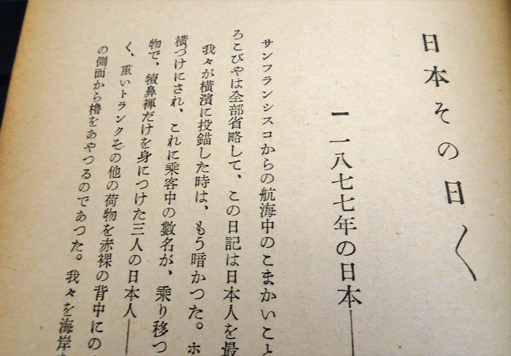 日本その日〱
一 一八七七年の日本――
サンフランシスコからの航海中のこまかいこと
ろこびやは全部省略して、この日記は日本人を最
我々が横濱に投錨した時は、もう暗かつた。ホ
横づけにされ、これに乘客中の數名が、乘り移つ
物で、犢鼻褌だけを身につけた三人の日本人――
く、重いトランクその他の荷物を赤裸の背中にの
の側面から櫓をあやつるのであつた。我々を海岸